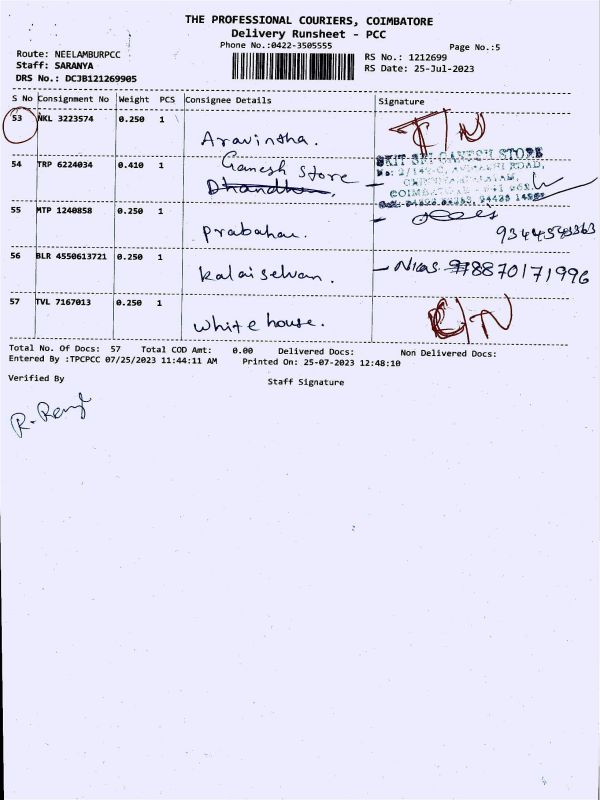 THE PROFESSIONAL COURIERS, COIMBATORE
Delivery Runsheet - PCC
Phone No.:0422-3505555
Page No.:5
Route: NEELAMBURPCC
Staff: SARANYA
DRS No.: DCJB121269905
RS No.: 1212699
RS Date: 25-Jul-2023
S No Consignment No Weight PCS Consignee Details Signature
53 NKL 3223574 0.250 1
Aravintha.
54 TRP 6224034 0.410 1 Ganesh Store
SKIT SRI GANESH STORE
COIMBATORE
55 MTP 1240858 0.250 1
Prabahar. 9344543363
56 BLR 4550613721 0.250 1
Kalaiselvan. - Nivas 8870171996
57 TVL 7167013 0.250 1
White house.
Total No. Of Docs: 57 Total COD Amt: 0.00 Delivered Docs: Non Delivered Docs:
Entered By :TPCPCC 07/25/2023 11:44:11 AM Printed On: 25-07-2023 12:48:10
Verified By Staff Signature